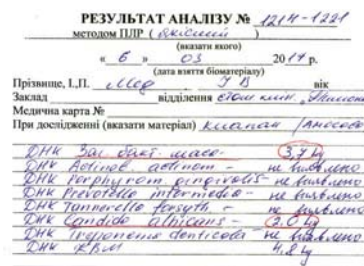 РЕЗУЛЬТАТ АНАЛІЗУ № 1214-1221
методом ПЛР ( якісний )
(вказати якого)
« 6 » 03 2017 р.
(дата взяття біоматеріалу)
Прізвище, І.,П. вік
Заклад відділення
Медична карта №
При дослідженні (вказати матеріал)
ДНК Заг. бакт. маса- 3,7 lg
ДНК Actinob. actinom не виявлено
ДНК Porphyrom gingivalis - не виявлено
ДНК Prevotella intermedia - не виявлено
ДНК Tannerella forsyth - не виявлено
ДНК Candida albicans - 2.0 lg
ДНК Treponema denticola - не виявлено
ДНК КВМ 4.8 lg